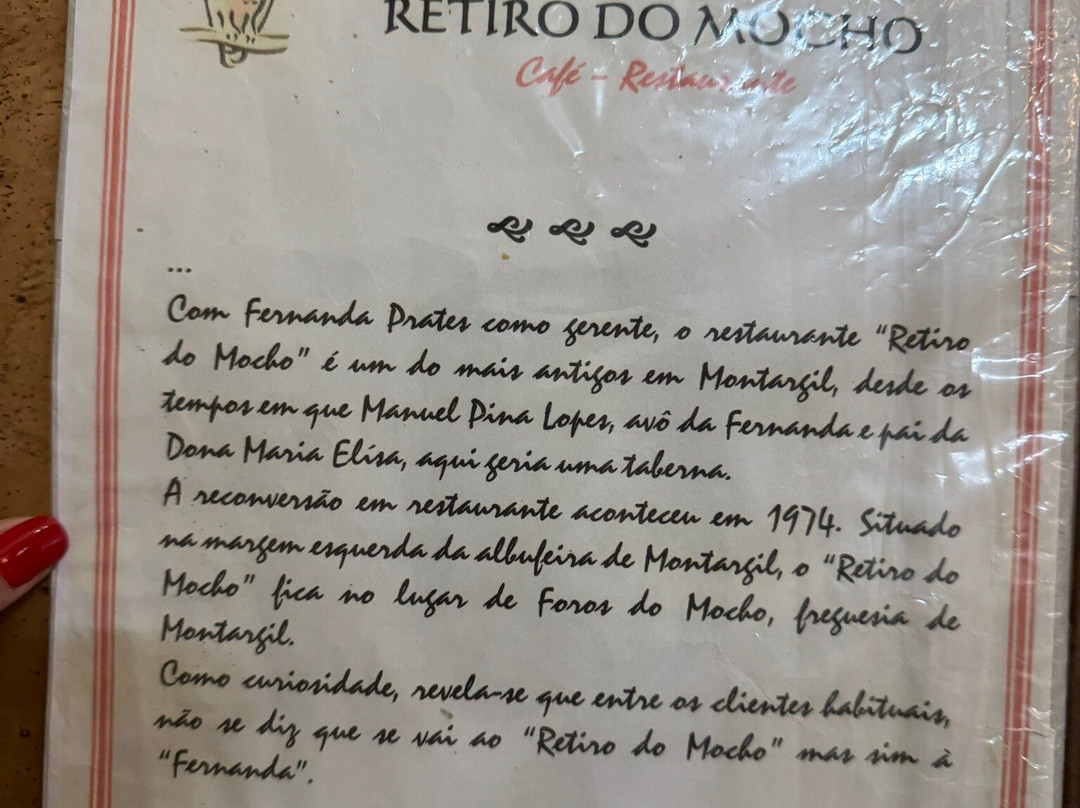 RETIRO DO MOCHO
Café - Restaurante
...
Com Fernanda Prates como gerente, o restaurante "Retiro
do Mocho" é um do mais antigos em Montargil, desde os
tempos em que Manuel Pina Lopes, avô da Fernanda e pai da
Dona Maria Elisa, aqui geria uma taberna.
A reconversão em restaurante aconteceu em 1974. Situado
na margem esquerda da albufeira de Montargil, o "Retiro do
Mocho" fica no lugar de Foros do Mocho, freguesia de
Montargil.
Como curiosidade, revela-se que entre os clientes habituais,
não se diz que se vai ao "Retiro do Mocho" mas sim à
"Fernanda".